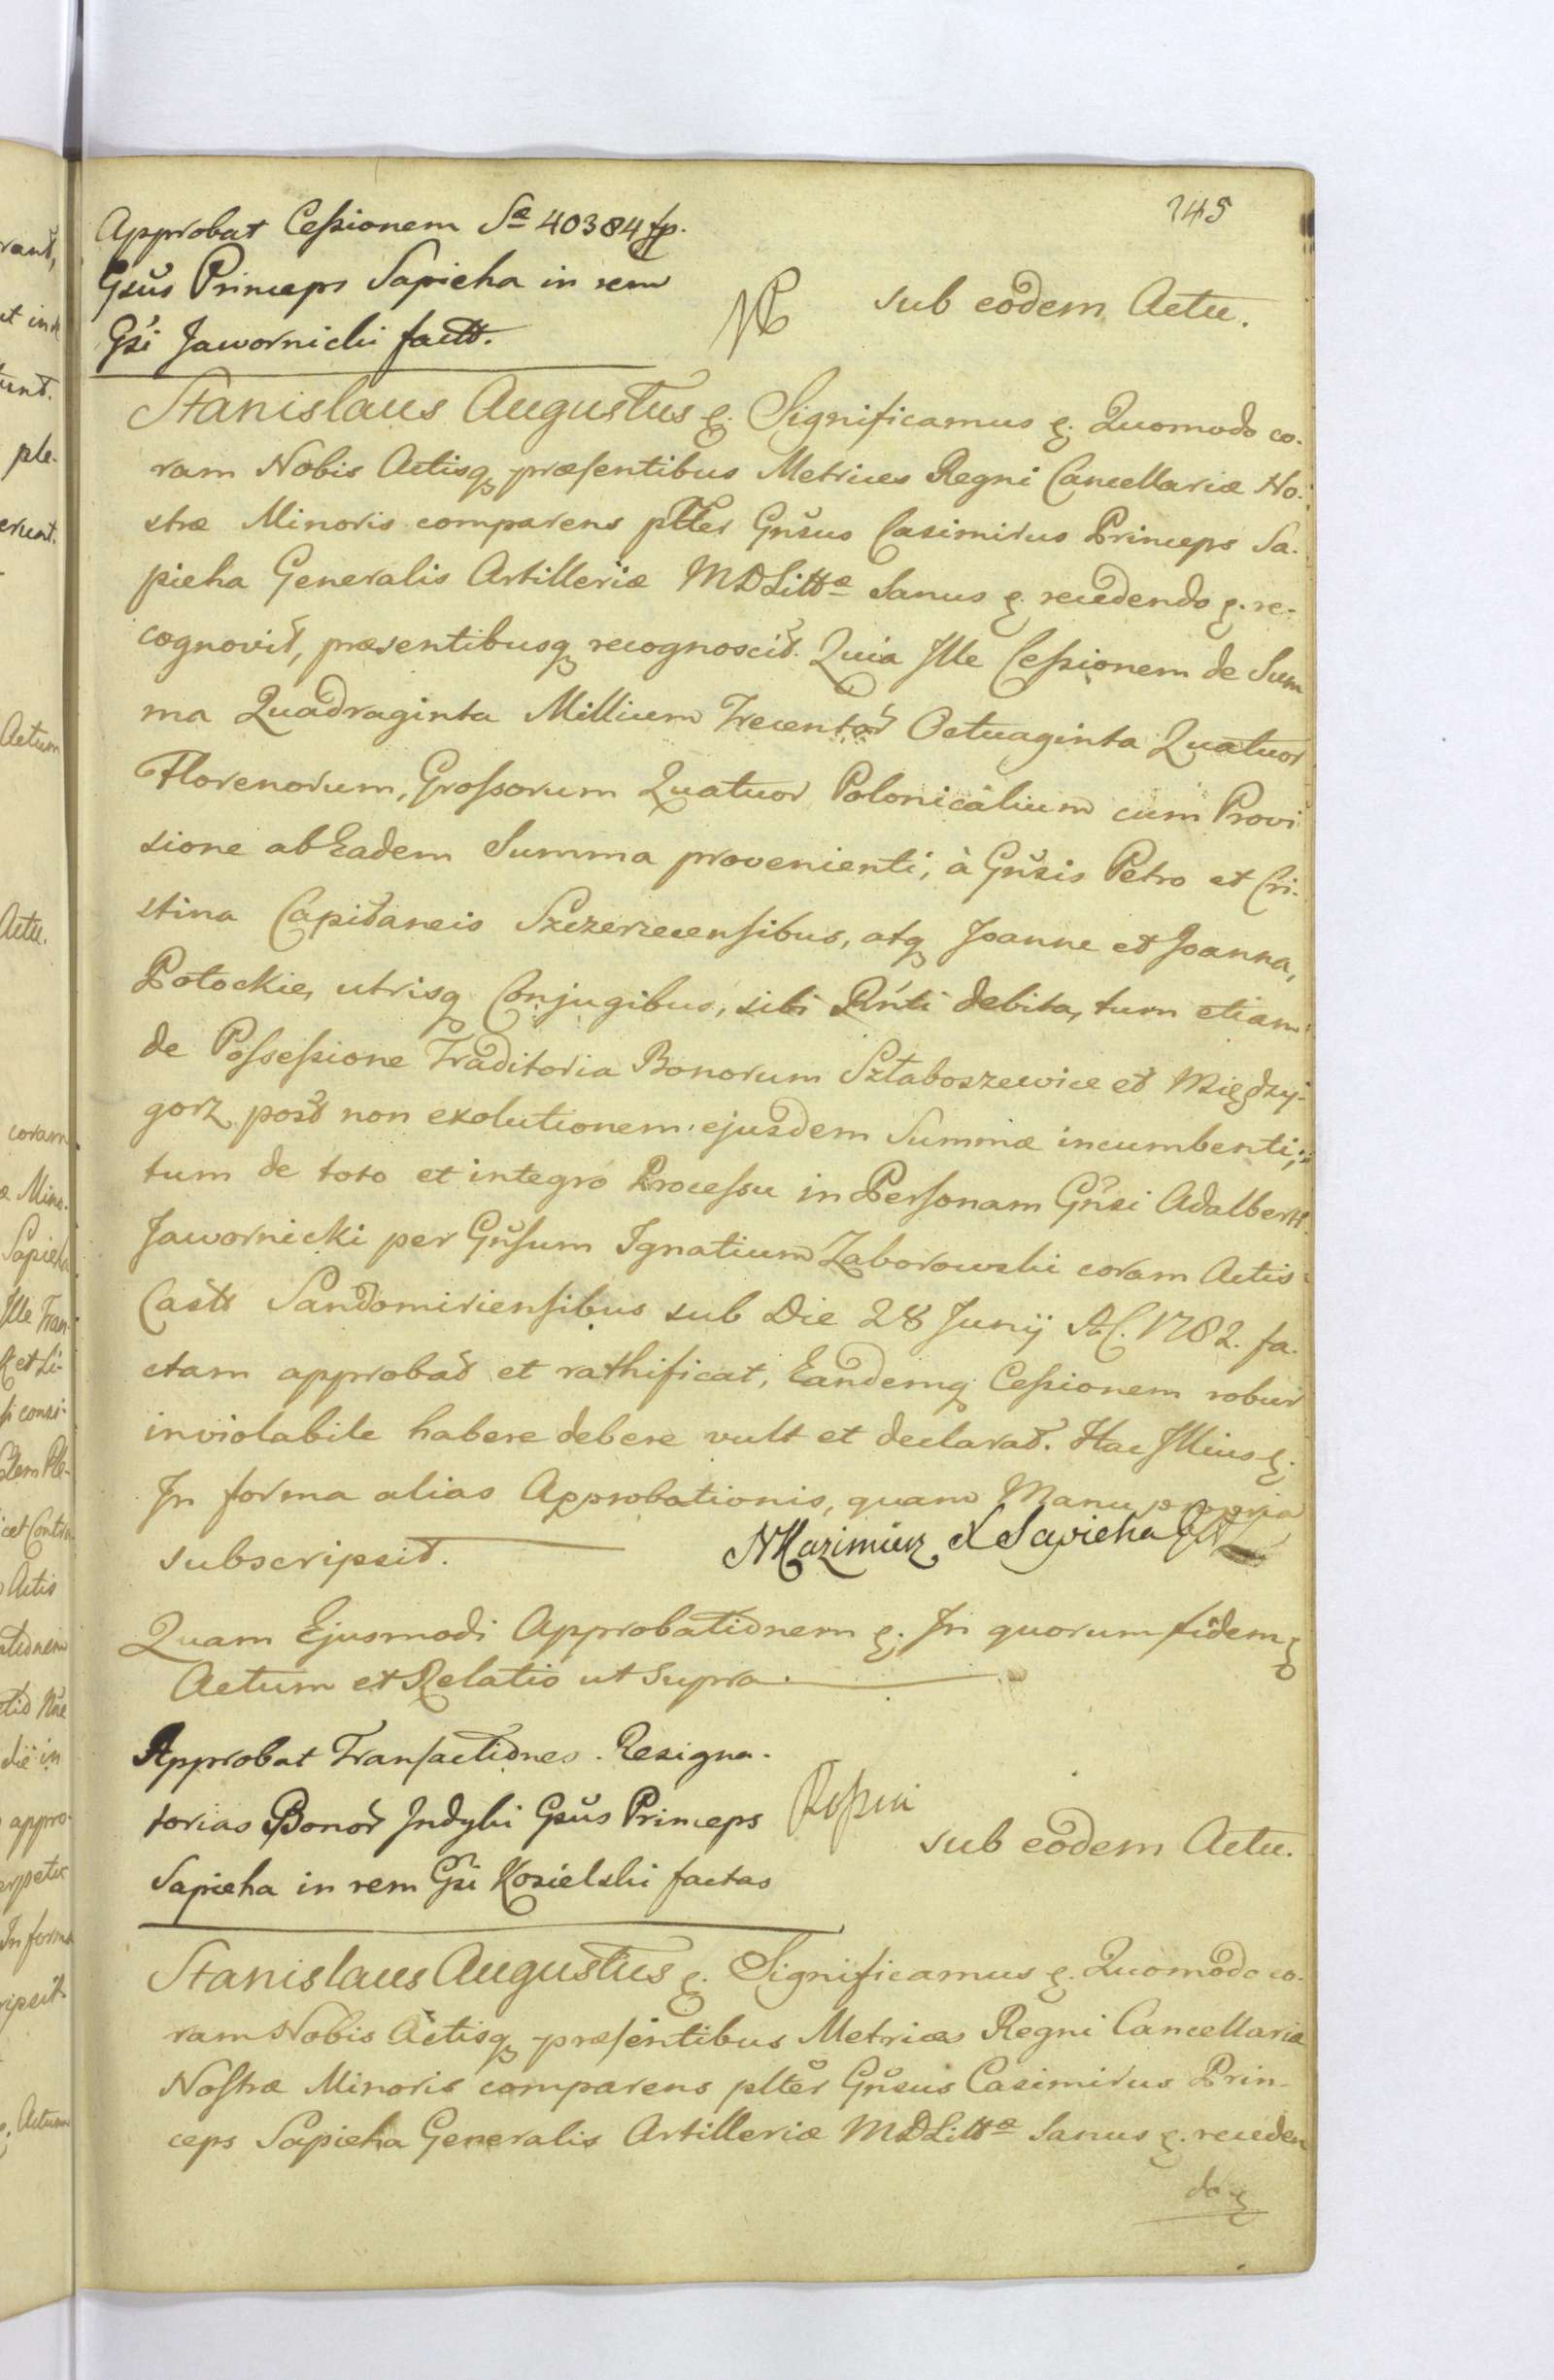 145
Approbat Cessionem Sæ 40384 fp.
Gsus Princeps Sapieha in rem
Gsi Jawornicki factt.
NB
sub eodem Actu.
Stanislaus Augustus &. Significamus &. Quomodo co-
ram Nobis Actisq præsentibus Metrices Regni Cancellariæ No-
stræ Minoris comparens pltter Gnsus Casimirus Princeps Sa-
pieha Generalis Artilleriæ MDLittæ Sanus &. recedendo &. re-
cognovit, præsentibusq recognoscit. Quia Ille Cessionem de Sum
ma Quadraginta Millium Trecentor Octuaginta Quatuor
Florenorum, Grossorum Quatuor Polonicalium cum Provi
sione ab Eadem Summa provenienti, à Gnsis Petro et Cri-
stina Capitaneis Szczerzecensibus, atq Joanne et Joanna,
Potockie, utrisq Conjugibus, sibi Rnti debita, tum etiam
de Possessione Traditoria Bonorum Sztaboszewice et Między-
gorz post non exolutionem ejusdem Summæ incumbenti;
tum de toto et integro Processu in Personam Gnsi Adalbertt
Jawornicki per Gnsum Ignatium Zaborowski coram Actis
Castr Sandomiriensibus sub Die 28 Junij A.C. 1782. fa-
ctam approbat et rathificat, Eandemq Cessionem robur
inviolabile habere debere vult et declarat. Hac Illius &.
In forma alias Approbationis, quam Manu propria
subscripsit.
NKazimierz X Sapieha
Quam Ejusmodi Approbationem &. In quorum fidem &
Actum et Relatio ut supra.
Approbat Transactiones Resigna-
torias Bonor Indyki Gsus Princeps
Sapieha in rem Gsi Kozielski factas
sub eodem Actu.
Stanislaus Augustus &. Significamus &. Quomodo co-
ram Nobis Actisq præsentibus Metrices Regni Cancellariæ
Nostræ Minoris comparens pltter Gnsus Casimirus Prin-
ceps Sapieha Generalis Artilleriæ MDLittæ Sanus &. receden
do &